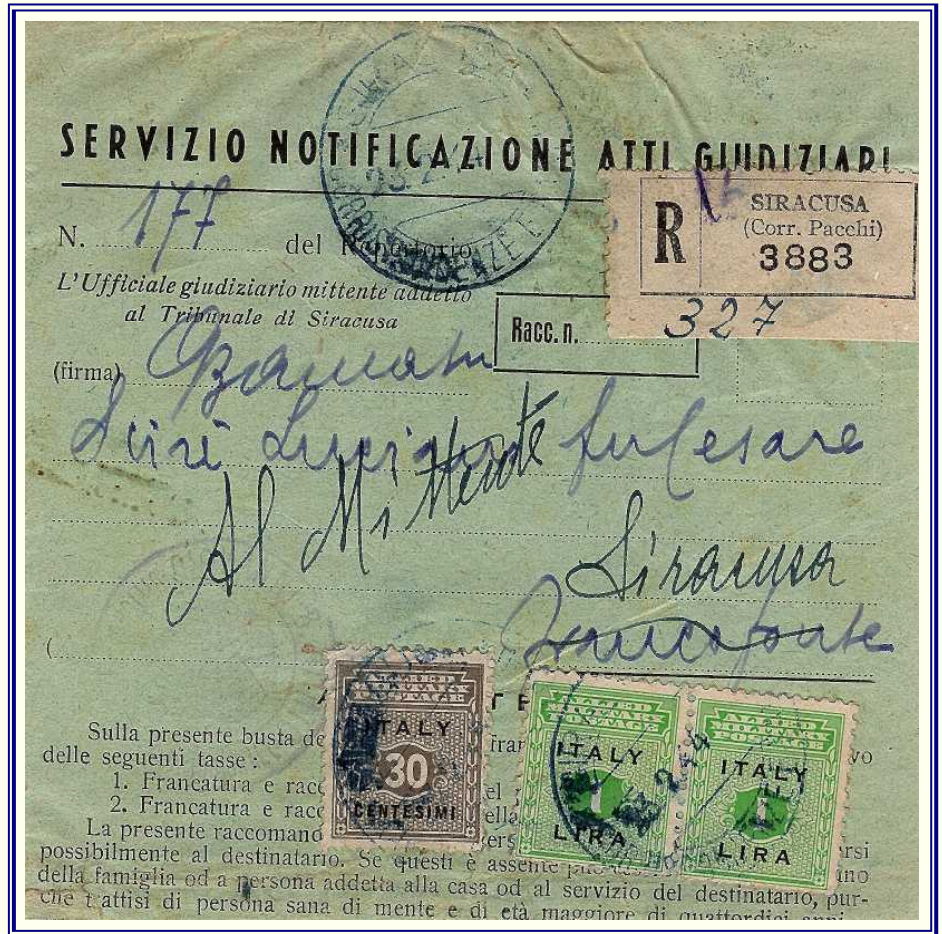 SERVIZIO NOTIFICAZIONE ATTI GIUDIZIARI
R
SIRACUSA
(Corr. Pacchi)
3883
327
N. 177 del
L'Ufficiale giudiziario mittente addetto
al Tribunale di Siracusa
Racc. n.
(firma)
fu Cesare
Al Mittente
Siracusa
Francofonte
(
ALLIED MILITARY POSTAGE
ITALY
30
CENTESIMI
ALLIED MILITARY POSTAGE
ITALY
1
LIRA
ALLIED MILITARY POSTAGE
ITALY
1
LIRA
Sulla presente busta de fran vo
delle seguenti tasse :
1. Francatura e racc el
2. Francatura e racc ella
La presente raccoman ers arsi
possibilmente al destinatario. Se questi è assente può ano
della famiglia od a persona addetta alla casa od al servizio del destinatario, pur-
che trattisi di persona sana di mente e di età maggiore di quattordici anni